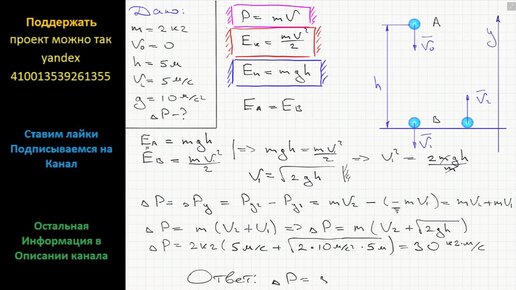 Поддержать
проект можно так
yandex
410013539261355
Ставим лайки
Подписываемся на
Канал
Остальная
Информация в
Описании канала
Дано:
m = 2 кг
V₀ = 0
h = 5 м
V₂ = 5 м/с
g = 10 м/с²
ΔP - ?
P = mV
Eк = mV²/2
Eп = mgh
E_A = E_B
A
V₀
h
y
B
V₁
V₂
E_A = mgh
E_B = mV₁²/2 | => mgh = mV₁²/2 => V₁² = 2mgh/m
V₁ = √2gh
ΔP = ΔPy = Py₂ - Py₁ = mV₂ - (-mV₁) = mV₂ + mV₁
ΔP = m (V₂ + V₁) => ΔP = m (V₂ + √2gh)
ΔP = 2кг (5 м/с + √2·10 м/с²·5 м) = 30 кг·м/с
Ответ: ΔP =